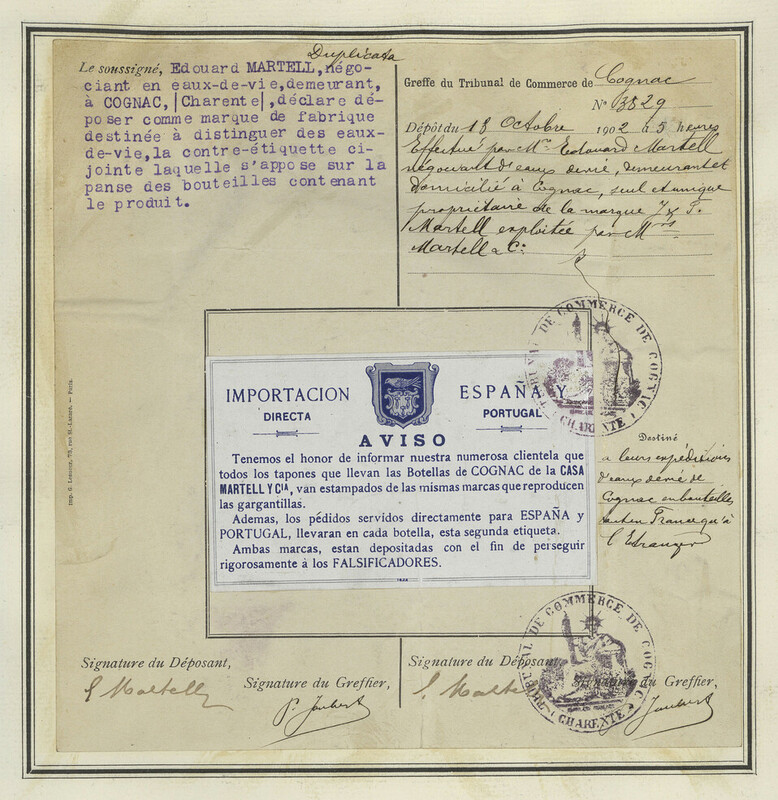 Duplicata
Le soussigné, Edouard MARTELL, négo-
ciant en eaux-de-vie, demeurant,
à COGNAC, |Charente|, déclare dé-
poser comme marque de fabrique
destinée à distinguer des eaux-
de-vie, la contre-étiquette ci-
jointe laquelle s'appose sur la
panse des bouteilles contenant
le produit.
Greffe du Tribunal de Commerce de Cognac
N° 3829
Dépôt du 18 Octobre 1902 à 5 heures
Effectué par Mr. Edouard Martell
négociant d'eaux de vie, demeurant et
domicilié à Cognac, seul et unique
propriétaire de la marque J & F.
Martell exploitée par Mrs
Martell & Cie
IMPORTACION
DIRECTA
ESPAÑA Y
PORTUGAL
AVISO
Tenemos el honor de informar nuestra numerosa clientela que
todos los tapones que llevan las Botellas de COGNAC de la CASA
MARTELL Y CIA, van estampados de las mismas marcas que reproducen
las gargantillas.
Ademas, los pédidos servidos directamente para ESPAÑA y
PORTUGAL, llevaran en cada botella, esta segunda etiqueta.
Ambas marcas, estan depositadas con el fin de perseguir
rigorosamente à los FALSIFICADORES.
TRIBUNAL DE COMMERCE DE COGNAC
CHARENTE
Destiné
a leurs expéditions
d'eaux de vie de
Cognac en bouteilles
tant en France qu'à
l'Etranger
Imp. G. Lemoine, rue St-Lazare. — Paris.
Signature du Déposant,
E Martell
Signature du Greffier,
P. Jaubert
Signature du Déposant,
E Martell
Signature du
Jaubert
TRIBUNAL DE COMMERCE DE COGNAC
CHARENTE